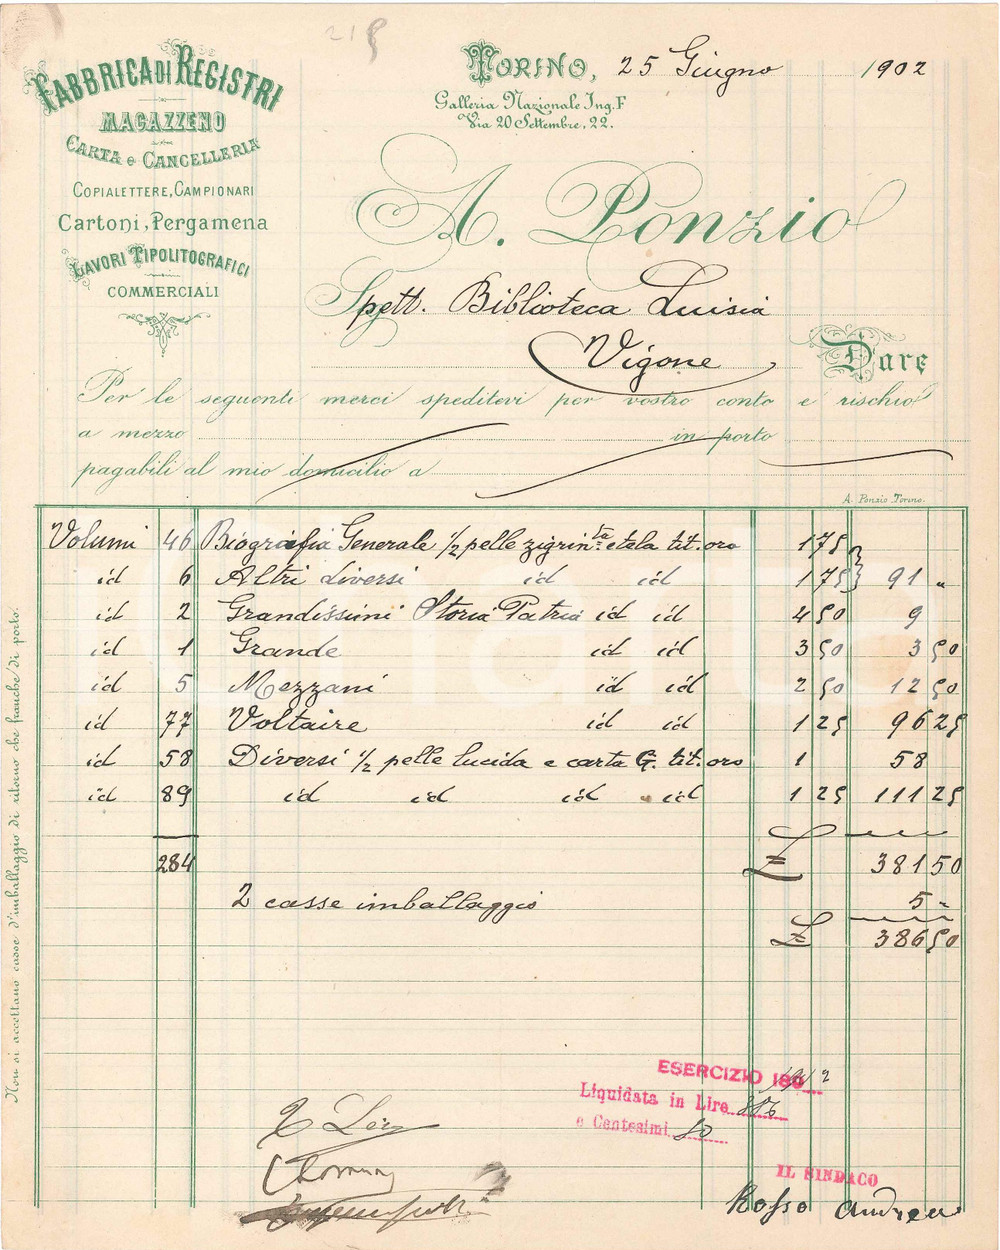 FABBRICA DI REGISTRI
MAGAZZENO
CARTA e CANCELLERIA
COPIALETTERE, CAMPIONARI
Cartoni, Pergamena
LAVORI TIPOLITOGRAFICI
COMMERCIALI
TORINO, 25 Giugno 1902
Galleria Nazionale Ing. F
Via 20 Settembre, 22.
A. Ponzio
Spett. Biblioteca Luisia
Vigone
Dare
Per le seguenti merci speditevi per vostro conto e rischio
a mezzo in porto
pagabili al mio domicilio a
A. Ponzio Torino.
Volumi 46 Biografia Generale 1/2 pelle zigrinta e tela tit. oro 1 75
id 6 Altri diversi id id 1 75 91 "
id 2 Grandissimi Storia Patria id id 4 50 9
id 1 Grande id id 3 50 3 50
id 5 Mezzani id id 2 50 12 50
id 77 Voltaire id id 1 25 96 25
id 58 Diversi 1/2 pelle lucida e carta G. tit. oro 1 58
id 89 id id id id 1 25 111 25
284 £ 381 50
2 casse imballaggio 5 "
£ 386 50
Non si accettano casse d'imballaggio di ritorno che franche di porto.
ESERCIZIO 1902
Liquidata in Lire 386
e Centesimi 50
IL SINDACO
Rosso Andrea